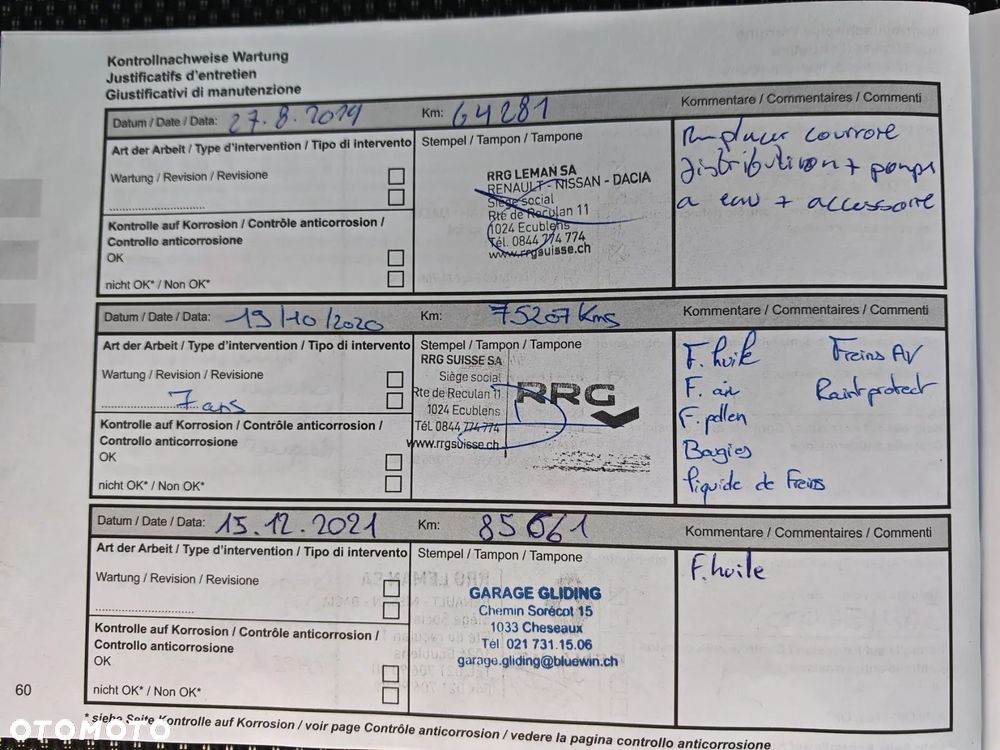 Kontrollnachweise Wartung
Justificatifs d'entretien
Giustificativi di manutenzione
Datum / Date / Data: 27.8.2019 Km: 64281 Kommentare / Commentaires / Commenti
Art der Arbeit / Type d'intervention / Tipo di intervento
Stempel / Tampon / Tampone
Wartung / Revision / Revisione
Kontrolle auf Korrosion / Contrôle anticorrosion /
Controllo anticorrosione
OK
nicht OK* / Non OK*
RRG LEMAN SA
RENAULT - NISSAN - DACIA
Siège social
Rte de Reculan 11
1024 Ecublens
Tél. 0844 774 774
www.rrgsuisse.ch
Remplacer courroie
distribution + pompe
a eau + accessoire
Datum / Date / Data: 19/10/2020 Km: 75207 Kms Kommentare / Commentaires / Commenti
Art der Arbeit / Type d'intervention / Tipo di intervento
Stempel / Tampon / Tampone
Wartung / Revision / Revisione
7 ans
Kontrolle auf Korrosion / Contrôle anticorrosion /
Controllo anticorrosione
OK
nicht OK* / Non OK*
RRG SUISSE SA
Siège social
Rte de Reculan 11
1024 Ecublens
Tél. 0844 774 774
www.rrgsuisse.ch
RRG
F. huile Freins AV
F. air Raintprotect
F. pollen
Bougies
liquide de Freins
Datum / Date / Data: 15.12.2021 Km: 85661 Kommentare / Commentaires / Commenti
Art der Arbeit / Type d'intervention / Tipo di intervento
Stempel / Tampon / Tampone
Wartung / Revision / Revisione
Kontrolle auf Korrosion / Contrôle anticorrosion /
Controllo anticorrosione
OK
nicht OK* / Non OK*
GARAGE GLIDING
Chemin Sorécot 15
1033 Cheseaux
Tél 021 731.15.06
garage.gliding@bluewin.ch
F. huile
60
* siehe Seite Kontrolle auf Korrosion / voir page Contrôle anticorrosion / vedere la pagina controllo anticorrosione
OTOMOTO